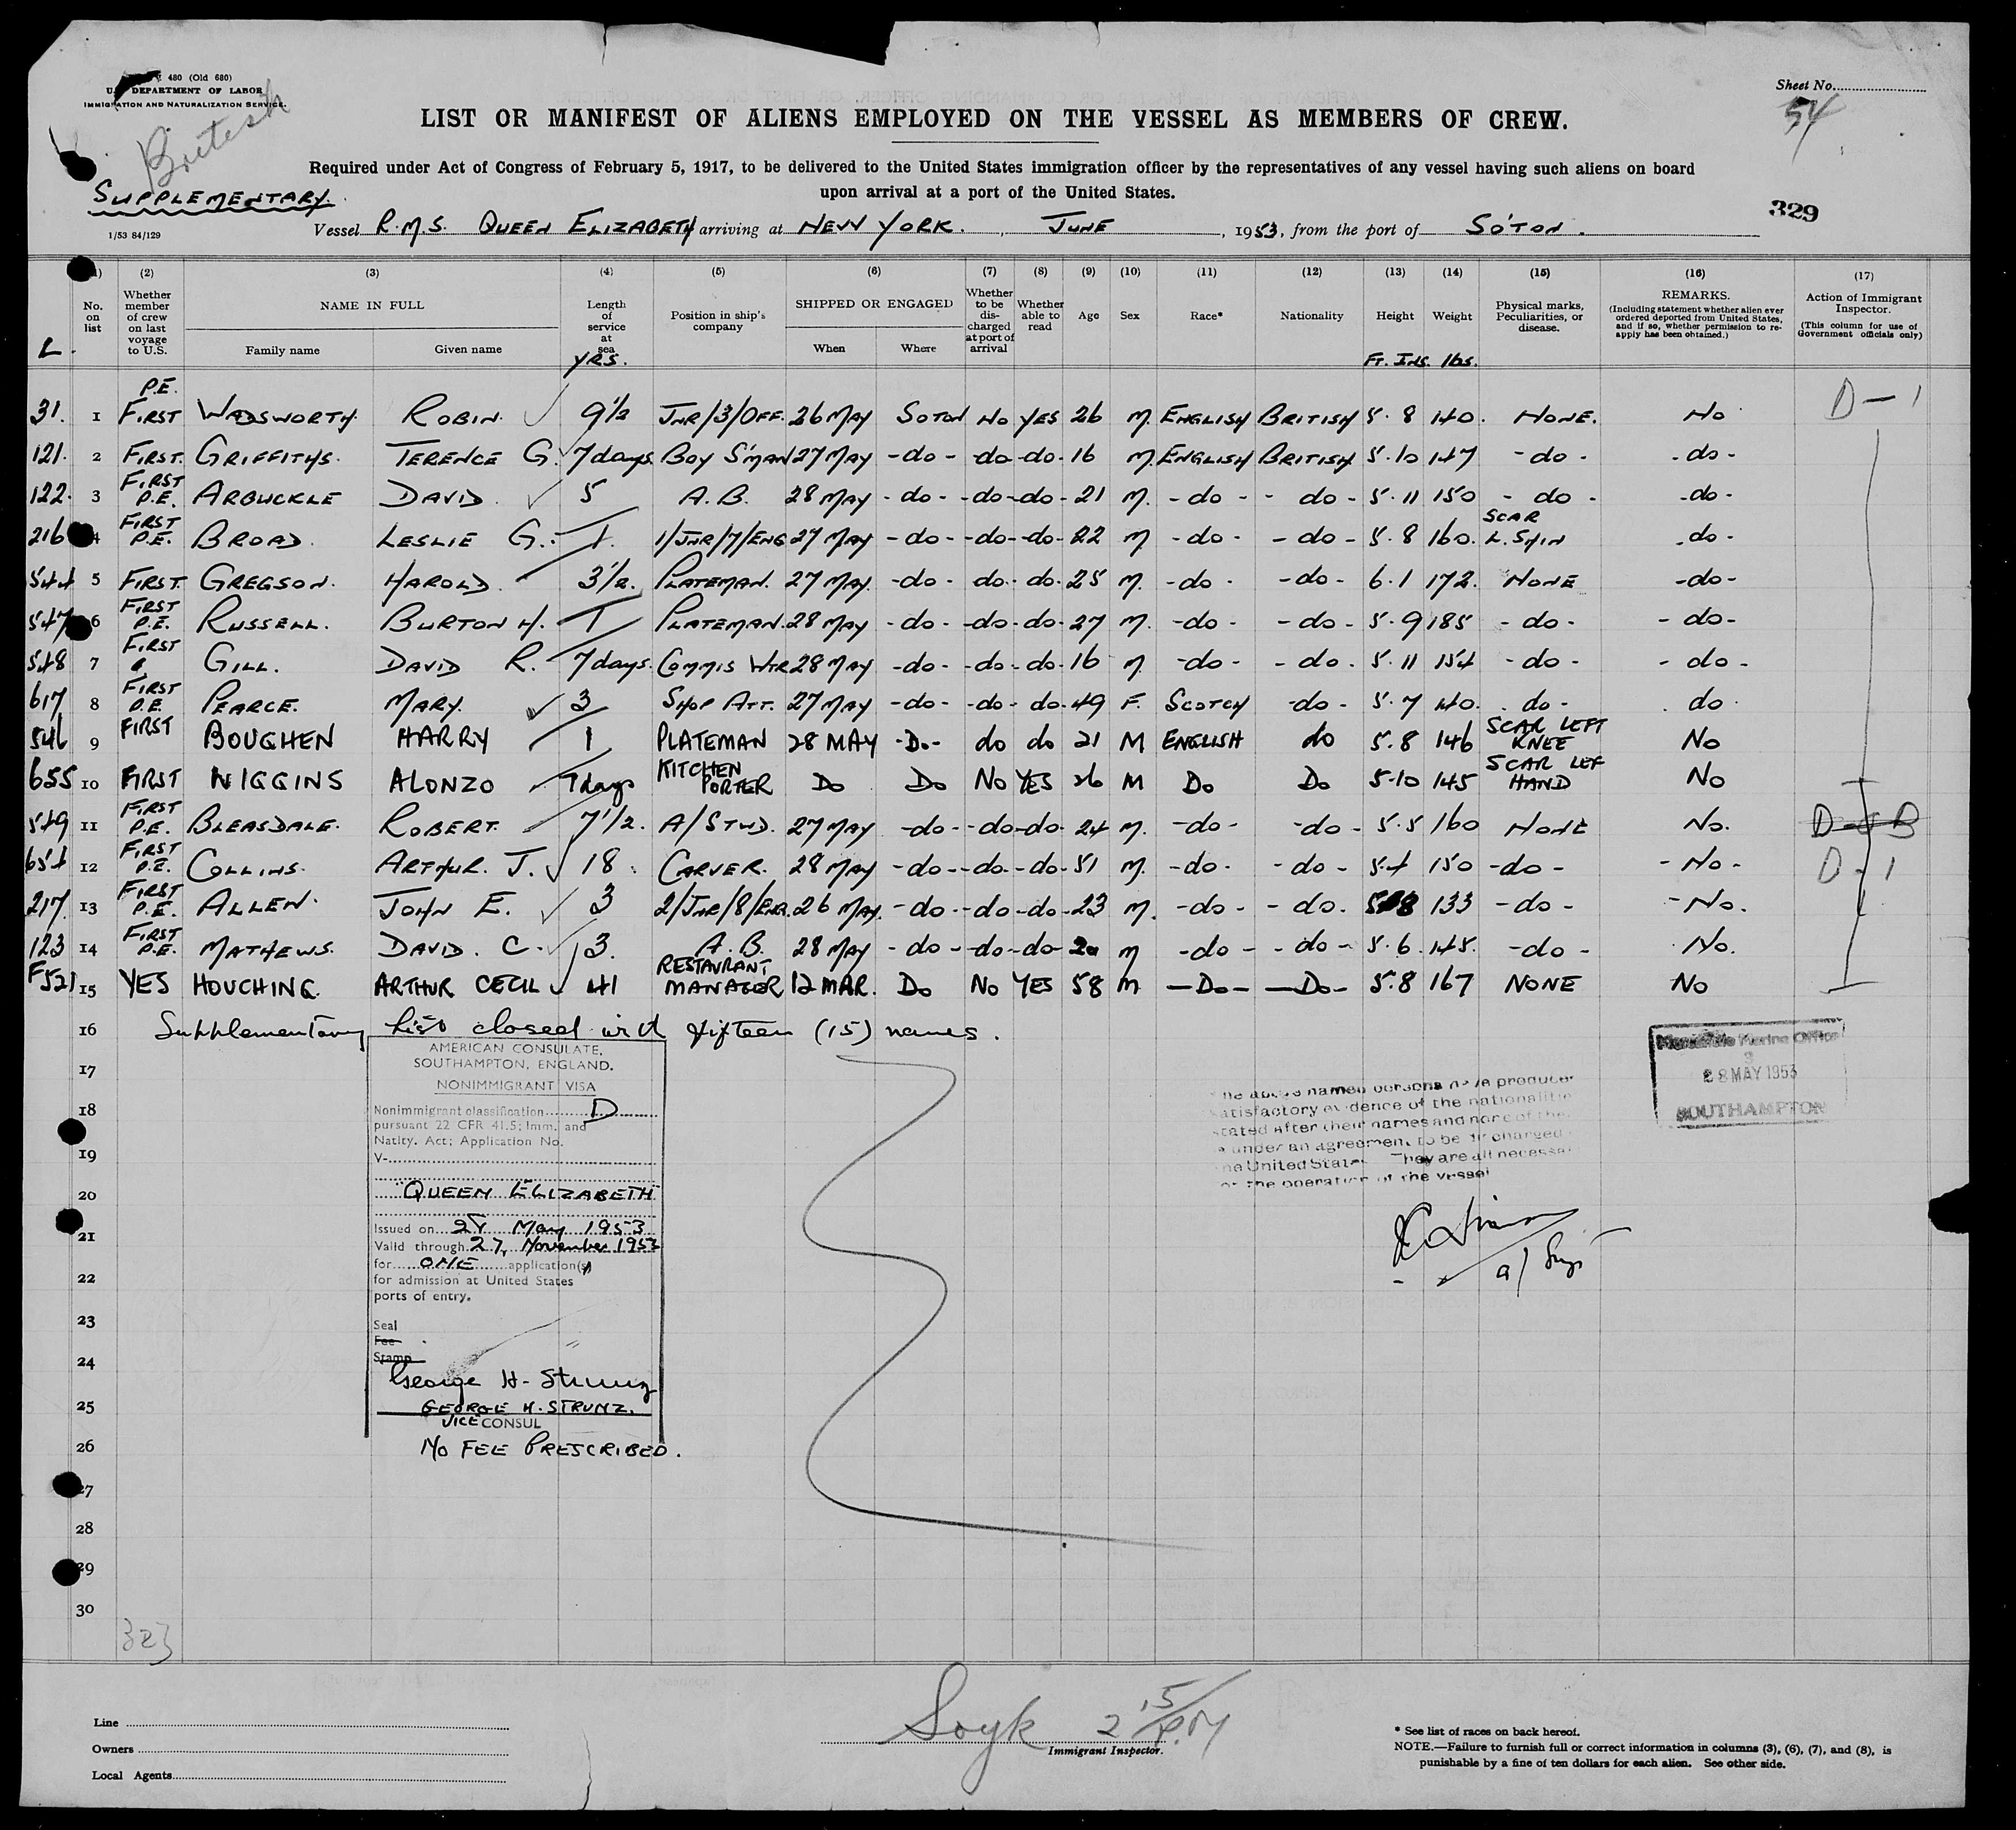 480 (Old 680)
U. DEPARTMENT OF LABOR
IMMIGRATION AND NATURALIZATION SERVICE.
British
SUPPLEMENTARY.
1/53 84/129
Sheet No.
54
329
LIST OR MANIFEST OF ALIENS EMPLOYED ON THE VESSEL AS MEMBERS OF CREW.
Required under Act of Congress of February 5, 1917, to be delivered to the United States immigration officer by the representatives of any vessel having such aliens on board
upon arrival at a port of the United States.
Vessel R.M.S. QUEEN ELIZABETH arriving at NEW YORK. , JUNE , 1953, from the port of SO'TON.
(1) (2) (3) (4) (5) (6) (7) (8) (9) (10) (11) (12) (13) (14) (15) (16) (17)
No. on list
Whether member of crew on last voyage to U.S.
NAME IN FULL
Family name Given name
Length of service at sea
YRS.
Position in ship's company
SHIPPED OR ENGAGED
When Where
Whether to be discharged at port of arrival
Whether able to read
Age
Sex
Race*
Nationality
Height
Ft. Ins.
Weight
lbs.
Physical marks, Peculiarities, or disease.
REMARKS.
(Including statement whether alien ever ordered deported from United States, and if so, whether permission to re-apply has been obtained.)
Action of Immigrant Inspector.
(This column for use of Government officials only)
L.
31. 1 P.E. FIRST WADSWORTH ROBIN. 9½ JNR/3/OFF. 26 MAY SOTON NO YES 26 M. ENGLISH BRITISH 5.8 140. NONE. No D-1
121. 2 FIRST. GRIFFITHS. TERENCE G. 7days BOY S'MAN 27 MAY -do- -do- do- 16 M. ENGLISH BRITISH 5.10 147 -do- -do-
122. 3 FIRST P.E. ARBUCKLE DAVID. 5 A.B. 28 MAY -do- -do- do- 21 M. -do- -do- 5.11 150 -do- -do-
216 4 FIRST P.E. BROAD. LESLIE G. 1. 1/JNR/7/ENG 27 MAY -do- -do- do- 22 M -do- -do- 5.8 160. SCAR L. SHIN -do-
544 5 FIRST. GREGSON. HAROLD. 3½. PLATEMAN. 27 MAY. -do- do- do- 25 M. -do- -do- 6.1 172. NONE -do-
547 6 FIRST P.E. RUSSELL. BURTON H. 1 PLATEMAN. 28 MAY -do- -do- do- 27 M. -do- -do- 5.9 185 -do- -do-
548 7 FIRST GILL. DAVID R. 7days. COMMIS WTR 28 MAY -do- -do- do- 16 M -do- -do- 5.11 154 -do- -do-
617 8 FIRST P.E. PEARCE. MARY. 3 SHOP ATT. 27 MAY -do- -do- do- 49 F. SCOTCH -do- 5.7 140. do- do
546 9 FIRST BOUGHEN HARRY 1 PLATEMAN 28 MAY -Do- do do 21 M ENGLISH do 5.8 146 SCAR LEFT KNEE No
655 10 FIRST WIGGINS ALONZO 7days KITCHEN PORTER Do Do NO YES 26 M Do Do 5.10 145 SCAR LEF HAND No
549 11 FIRST P.E. BLEASDALE. ROBERT. 7½. A/STWD. 27 MAY -do- -do- do- 24 M. -do- -do- 5.5 160 NONE No.
654 12 FIRST P.E. COLLINS. ARTHUR. J. 18. CARVER. 28 MAY -do- -do- do- 51 M. -do- -do- 5.4 150 -do- -No- D-1
217. 13 FIRST P.E. ALLEN. JOHN E. 3 2/JNR/8/ENG. 26 MAY. -do- -do- do- 23 M. -do- -do- 5 8 133 -do- -No.
123 14 FIRST P.E. MATHEWS. DAVID. C. 3. A.B. 28 MAY -do- -do- do- 20 M -do- -do- 5.6. 145. -do- No.
F521 15 YES HOUCHING. ARTHUR CECIL 41 RESTAURANT MANAGER 12 MAR. Do NO YES 58 M -Do- -Do- 5.8 167 NONE No
16 Supplementary list closed with fifteen (15) names.
17
18
19
20
21
22
23
24
25
26
27
28
29
30
AMERICAN CONSULATE,
SOUTHAMPTON, ENGLAND.
NONIMMIGRANT VISA
Nonimmigrant classification D
pursuant 22 CFR 41.5; Imm. and
Natity. Act; Application No.
V-
"QUEEN ELIZABETH"
Issued on 28 May 1953
Valid through 27, November 1953
for ONE application(s)
for admission at United States
ports of entry.
Seal
Fee
Stamp
George H. Strunz
GEORGE H. STRUNZ.
VICE CONSUL
NO FEE PRESCRIBED.
The above named persons have produced
satisfactory evidence of the nationalities
stated after their names and none of them
under an agreement to be discharged
the United States They are all necessary
the operation of the vessel
Mercantile Marine Office
3
28 MAY 1953
SOUTHAMPTON
323
Line
Owners
Local Agents
Soyk 2 15/PM
Immigrant Inspector.
* See list of races on back hereof.
NOTE.—Failure to furnish full or correct information in columns (3), (6), (7), and (8), is
punishable by a fine of ten dollars for each alien. See other side.